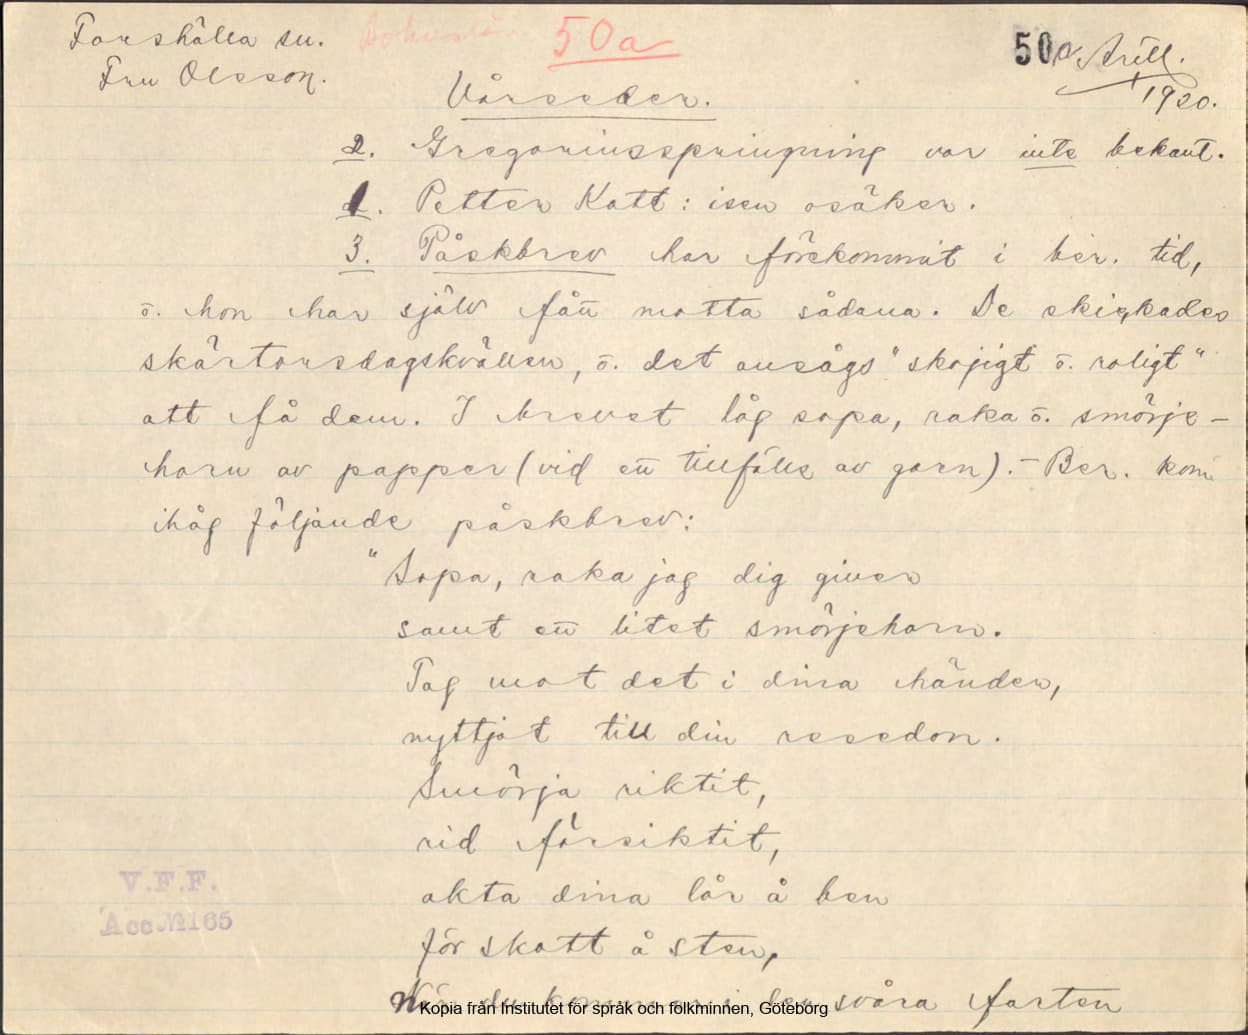 Forshälla sn. Bohuslän. 50a 50a. Arill.
Fru Olsson. 1920.
Vårseder.
2. Gregoriusspringning var inte bekant.
1. Petter Katt: isen osäker.
3. Påskbrev har förekommit i ber. tid,
o. hon har själv fått motta sådana. De skickades
skärtorsdagskvällen, o. det ansågs "skojigt o. roligt"
att få dem. I brevet låg sopa, raka o. smörje-
horn av papper (vid ett tillfälle av garn). - Ber. kom
ihåg följande påskbrev:
"Sopa, raka jag dig giver
samt ett litet smörjehorn.
Tag mot det i dina händer,
nyttja't till din resedon.
Smörja riktit,
rid försiktit,
akta dina lår å ben
för skatt å sten,
När du kommer i den svåra farten
V.F.F.
Acc No 165
Kopia från Institutet för språk och folkminnen, Göteborg